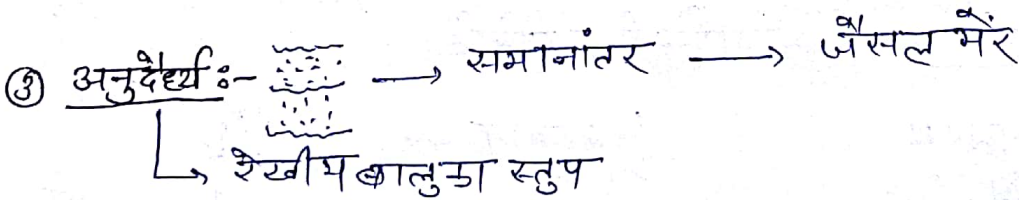 ③ अनुदैर्ध्य :- → समानांतर → जैसलमेर
↳ रेखीय बालुका स्तुप